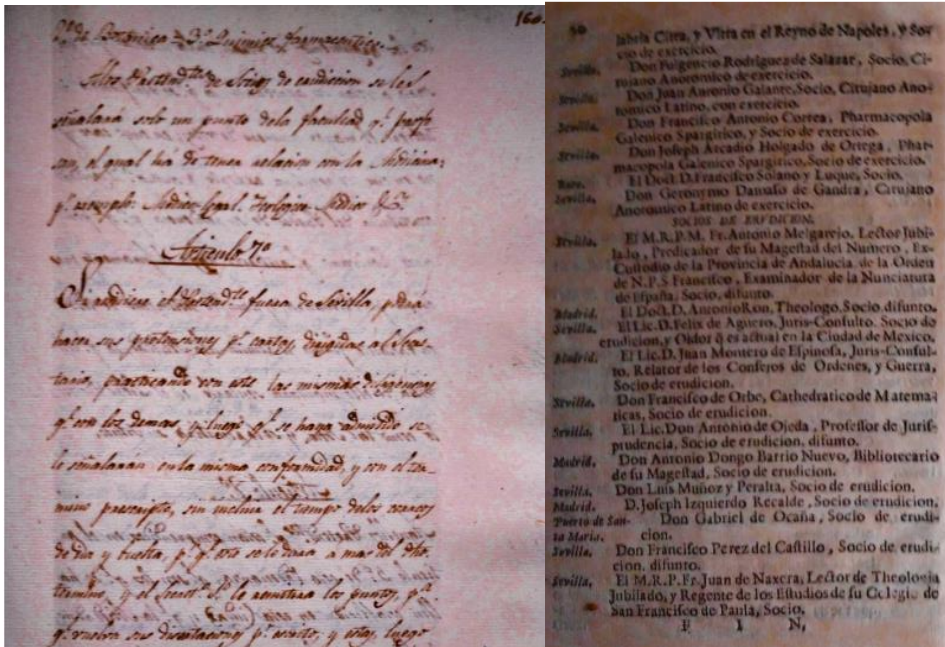 160.
de Botanica = 3.º Quimico farmaceutico.
A los Pretend.tes de Socios de erudicion se les
señalara solo un punto dela facultad q.e profe
san, el qual há de tener relacion con la Medicina:
p.r exemplo: Medico Legal. Teologico Medico &c.ª
Articulo 7.º
Si residiese el Pretend.te fuera de Sevilla, podra
hacer sus pretensiones p.r cartas dirigidas al Secre
tario, practicando con este las mismas diligencias
q.e con los demas, y luego q.e se haya admitido se
le señalarán en la misma conformidad, y con el ter
mino prescripto, sin incluir el tiempo delos correos
de ida y buelta, p.s q.e este se le dara a mas del dho.
termino, y el Secret.º le remitira los puntos, p.ª
q.e vuelva sus disertaciones p.r escrito, y estas, luego
50
labria Citra, y Vltra en el Reyno de Napoles, y So-
cio de exercicio.
Sevilla. Don Fulgencio Rodriguez de Salazar, Socio, Ci-
rujano Anotomico de exercicio.
Sevilla. Don Juan Antonio Galante, Socio, Cirujano Ano-
tomico Latino, con exercicio.
Sevilla. Don Francisco Antonio Correa, Pharmacopola
Galenico Spargirico, y Socio de exercicio.
Sevilla. Don Joseph Arcadio Holgado de Ortega, Phar-
macopola Galenico Spargirico, Socio de exercicio.
El Doct. D. Francisco Solano y Luque, Socio.
Sevilla. Don Geronymo Damaso de Gandra, Cirujano
Anotomico Latino de exercicio.
SOCIOS DE ERUDICION.
Sevilla. El M.R.P.M. Fr. Antonio Melgarejo, Lector Jubi-
lado, Predicador de su Magestad del Numero, Ex-
Custodio de la Provincia de Andalucia, de la Orden
de N.P.S Francisco, Examinador de la Nunciatura
de España, Socio, difunto.
Madrid. El Doct. D. Antonio Ron, Theologo, Socio difunto.
Sevilla. El Lic. D. Felix de Aguero, Juris-Consulto, Socio de
erudicion, y Oidor q̃ es actual en la Ciudad de Mexico.
Madrid. El Lic. D. Juan Montero de Espinosa, Juris-Consul-
to, Relator de los Consejos de Ordenes, y Guerra,
Socio de erudicion.
Sevilla. Don Francisco de Orbe, Cathedratico de Matema-
ticas, Socio de erudicion.
Sevilla. El Lic. Don Antonio de Ojeda, Professor de Juris-
prudencia, Socio de erudicion, difunto.
Madrid. Don Antonio Dongo Barrio Nuevo, Bibliotecario
de su Magestad, Socio de erudicion.
Sevilla. Don Luis Muñoz y Peralta, Socio de erudicion.
Madrid. D. Joseph Izquierdo Recalde, Socio de erudicion.
Puerto de San- Don Gabriel de Ocaña, Socio de erudi-
ta Maria. cion.
Sevilla. Don Francisco Perez del Castillo, Socio de erudi-
cion, difunto.
Sevilla. El M.R.P. Fr. Juan de Naxera, Lector de Theologia
Jubilado, y Regente de los Estudios de su Colegio de
San Francisco de Paula, Socio.
F I N.